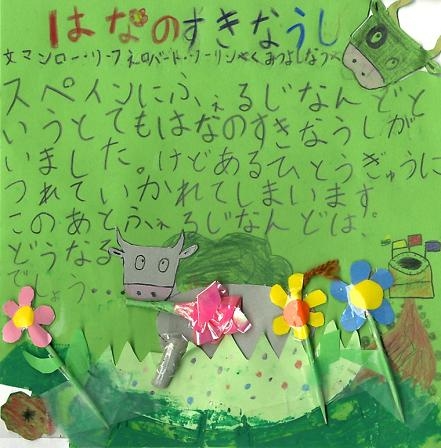 はなのすきなうし
文マンロー・リーフえロバート・ローソンやくみつよしなつや
スペインにふぇるじなんどと
いうとてもはなのすきなうしが
いました。けどあるひとうぎゅうに
つれていかれてしまいます
このあとふぇるじなんどは。
どうなる
でしょう...